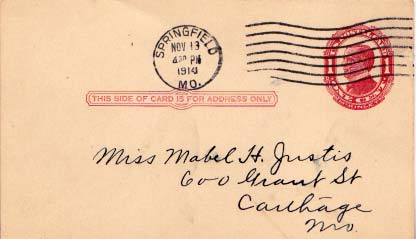 SPRINGFIELD
NOV 13
4 30 PM
1914
MO.
THIS SIDE OF CARD IS FOR ADDRESS ONLY
Miss Mabel H. Justis
600 Grant St
Carthage
Mo.